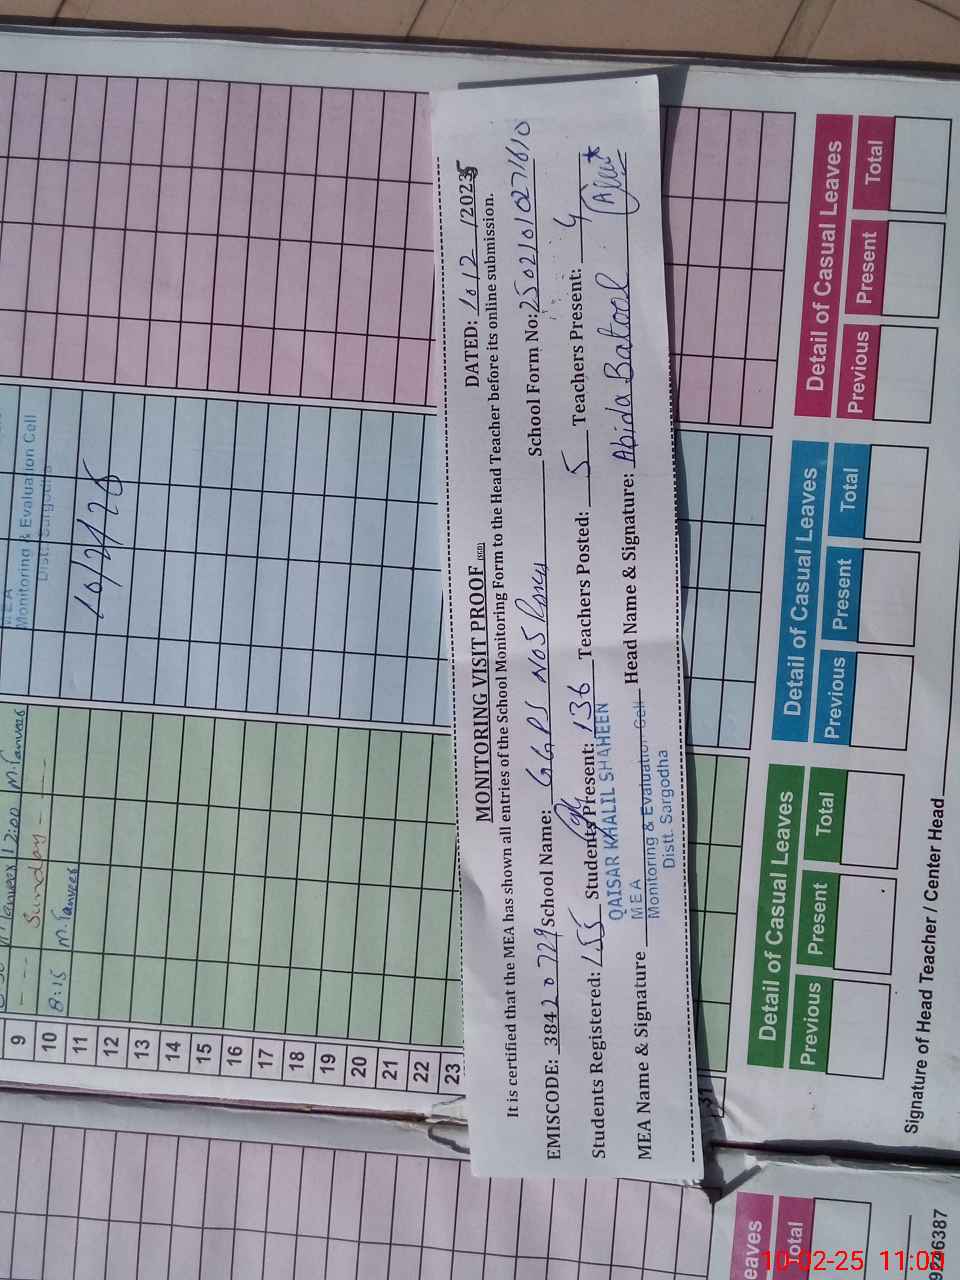 MONITORING VISIT PROOF
DATED: 10/2/2025
It is certified that the MEA has shown all entries of the School Monitoring Form to the Head Teacher before its online submission.
EMISCODE: 38420729 School Name: GGPS No 5 School Form No: 25021010271610
Students Registered: 155 Students Present: 136 Teachers Posted: 5 Teachers Present: 4
MEA Name & Signature Head Name & Signature: Abida Batool
QAISAR KHALIL SHAHEEN
MEA
Monitoring & Evaluation Cell
Distt. Sargodha
Monitoring & Evaluation Cell
Distt. Sargodha
10/2/25
12:00
9 Sunday
10 8:15 M. Tanveer
11
12
13
14
15
16
17
18
19
20
21
22
23
Detail of Casual Leaves
Previous Present Total
Detail of Casual Leaves
Previous Present Total
Detail of Casual Leaves
Previous Present Total
Signature of Head Teacher / Center Head
eaves
Total
10-02-25 11:00